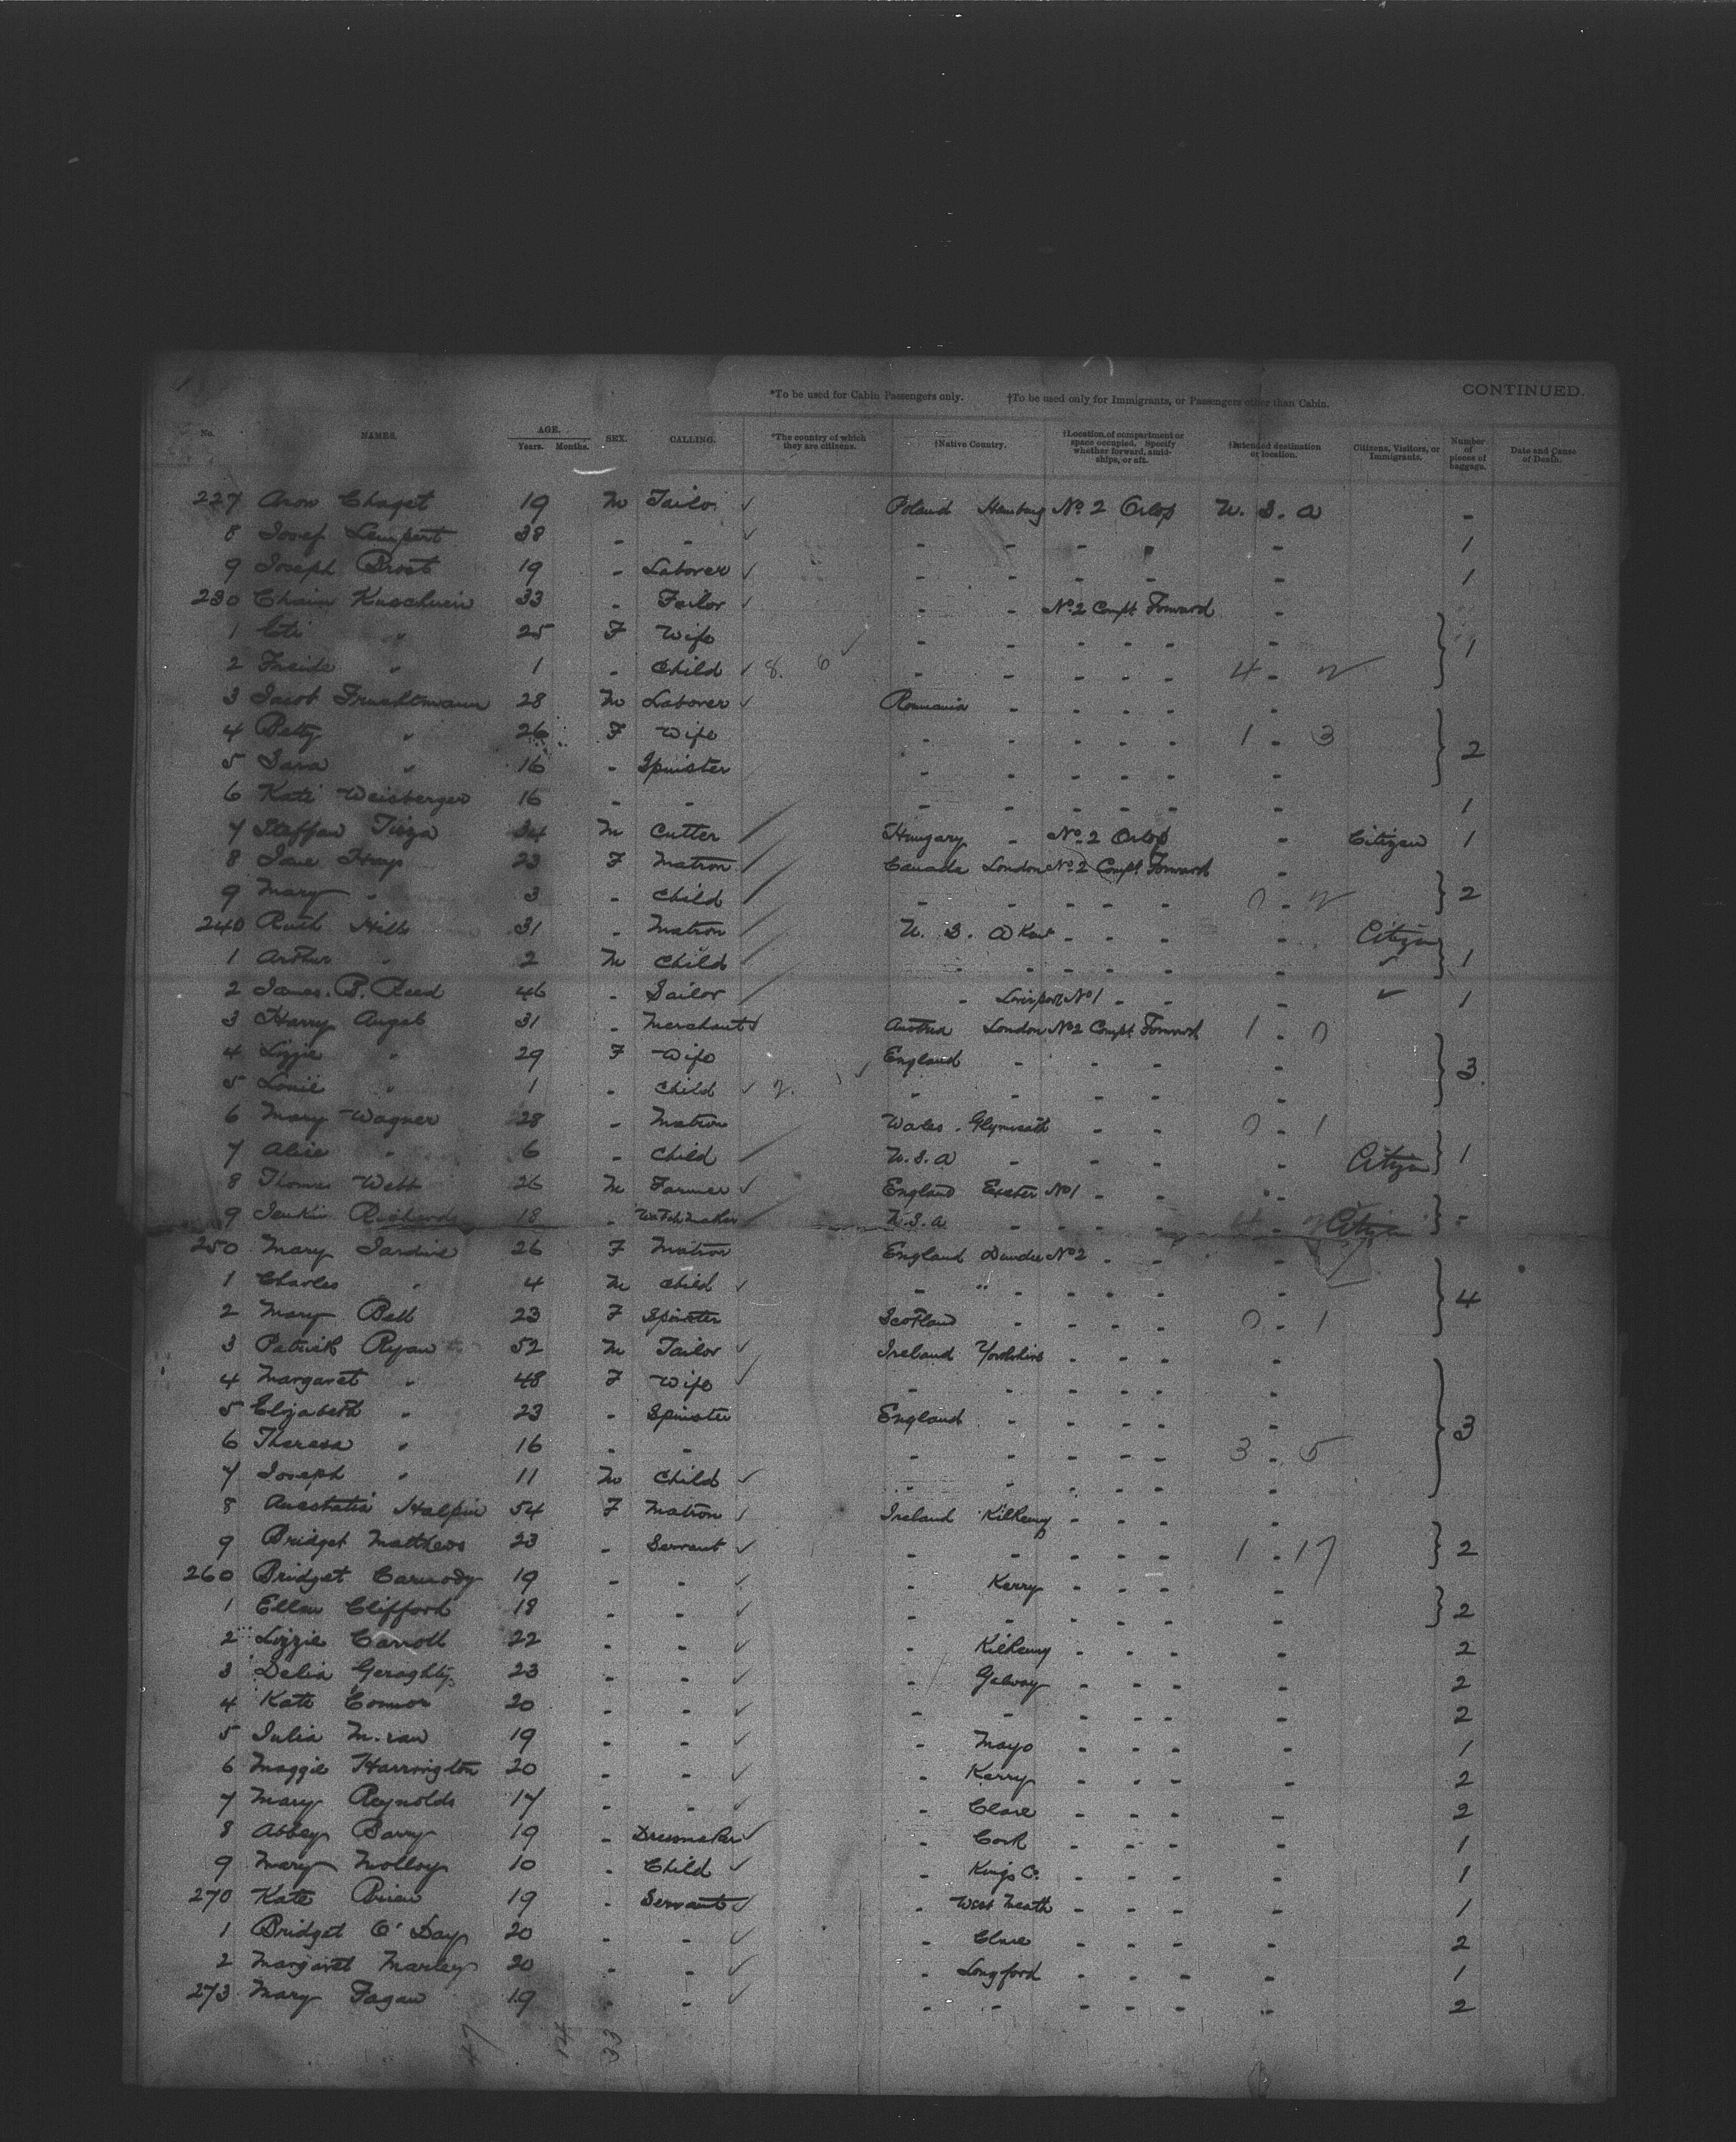 CONTINUED.
*To be used for Cabin Passengers only. †To be used only for Immigrants, or Passengers other than Cabin.
No. NAMES. AGE. Years. Months. SEX. CALLING. *The country of which they are citizens. †Native Country. †Location of compartment or space occupied. Specify whether forward, amidships, or aft. †Intended destination or location. Citizens, Visitors, or Immigrants. Number of pieces of baggage. Date and Cause of Death.
227 Aron Chaget 19 M Tailor ✓ Poland Hamburg No. 2 Orlop U. S. A -
8 Josef Lempert 38 - - ✓ - - - - - 1
9 Joseph Brost 19 - Laborer ✓ - - - - - 1
230 Chaim 33 - Tailor ✓ - - No. 2 Compt Forward -
1 " 25 F Wife - - - - - - 1
2 Freide " 1 - Child ✓ 8. 6 - - - - - 4 -
3 Jacob Fruchtmann 28 M Laborer ✓ Roumania - - - - -
4 Betty " 26 F Wife - - - - - 1 - 3 2
5 Sara " 16 - Spinster - - - - - -
6 Kati Weisberger 16 - - - - - - - - 1
7 Steffan 34 M Cutter Hungary - No. 2 Orlop - Citizen 1
8 Jane Hays 23 F Matron Canada London No. 2 Compt Forward -
9 Mary " 3 - Child - - - - - 0 - 2
240 Ruth Hill 31 - Matron U. S. A Kent - - - - Citizen
1 Arthur " 2 M Child - - - - - - ✓ 1
2 James. B. Reed 46 - Sailor - Liverpool No 1 - - - ✓ 1
3 Harry Angel 31 - Merchant ✓ Austria London No 2 Compt Forward 1 - 0
4 Lizzie " 29 F Wife England - - - - - 3
5 Louie " 1 - Child ✓ 2. - - - - - -
6 Mary Wagner 28 - Matron Wales - - 0 - 1
7 Alice " 6 - Child U.S.A - - - - - Citizen 1
8 Thomas Webb 26 M Farmer ✓ England Exeter No 1 - - -
9 Jenkin Richards 18 - Watchmaker U.S.A - - - - Citizen -
250 Mary Jardine 26 F Matron England Dundee No 2 - - -
1 Charles " 4 M Child ✓ - " - - - - 4
2 Mary Bell 23 F Spinster Scotland - - - - 0 - 1
3 Patrick Ryan 52 M Tailor ✓ Ireland Yorkshire - - - -
4 Margaret " 48 F Wife ✓ - - - - - -
5 Elizabeth " 23 - Spinster England - - - - - 3
6 Theresa " 16 - - - - - - - 3 - 5
7 Joseph " 11 M Child ✓ - - - - - -
8 Anastatia Halpin 54 F Matron ✓ Ireland Kilkenny - - - -
9 Bridget Matthews 23 - Servant ✓ - - - - - 1 - 17 2
260 Bridget Carmody 19 - - ✓ - Kerry - - - -
1 Ellen Clifford 18 - - ✓ - - - - - - 2
2 Lizzie Carroll 22 - - ✓ - Kilkenny - - - - 2
3 Delia Geraghty 23 - - ✓ - Galway - - - - 2
4 Kate Connor 20 - - ✓ - - - - - - 2
5 Julia 19 - - ✓ - Mayo - - - - 1
6 Maggie Harrington 20 - - ✓ - Kerry - - - - 2
7 Mary Reynolds 17 - - ✓ - Clare - - - - 2
8 Abbey Barry 19 - Dressmaker ✓ - Cork - - - - 1
9 Mary Molloy 10 - Child ✓ - Kings Co. - - - - 1
270 Kate 19 - Servant ✓ - West Meath - - - - 1
1 Bridget O'Day 20 - - ✓ - Clare - - - - 2
2 Margaret Marley 20 - - ✓ - Longford - - - - 1
273 Mary Fagan 19 - - ✓ - - - - - - 2
47 14 33